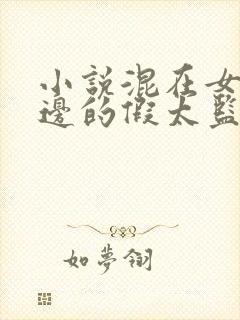 小說混在女
邊的假太監
如夢翎